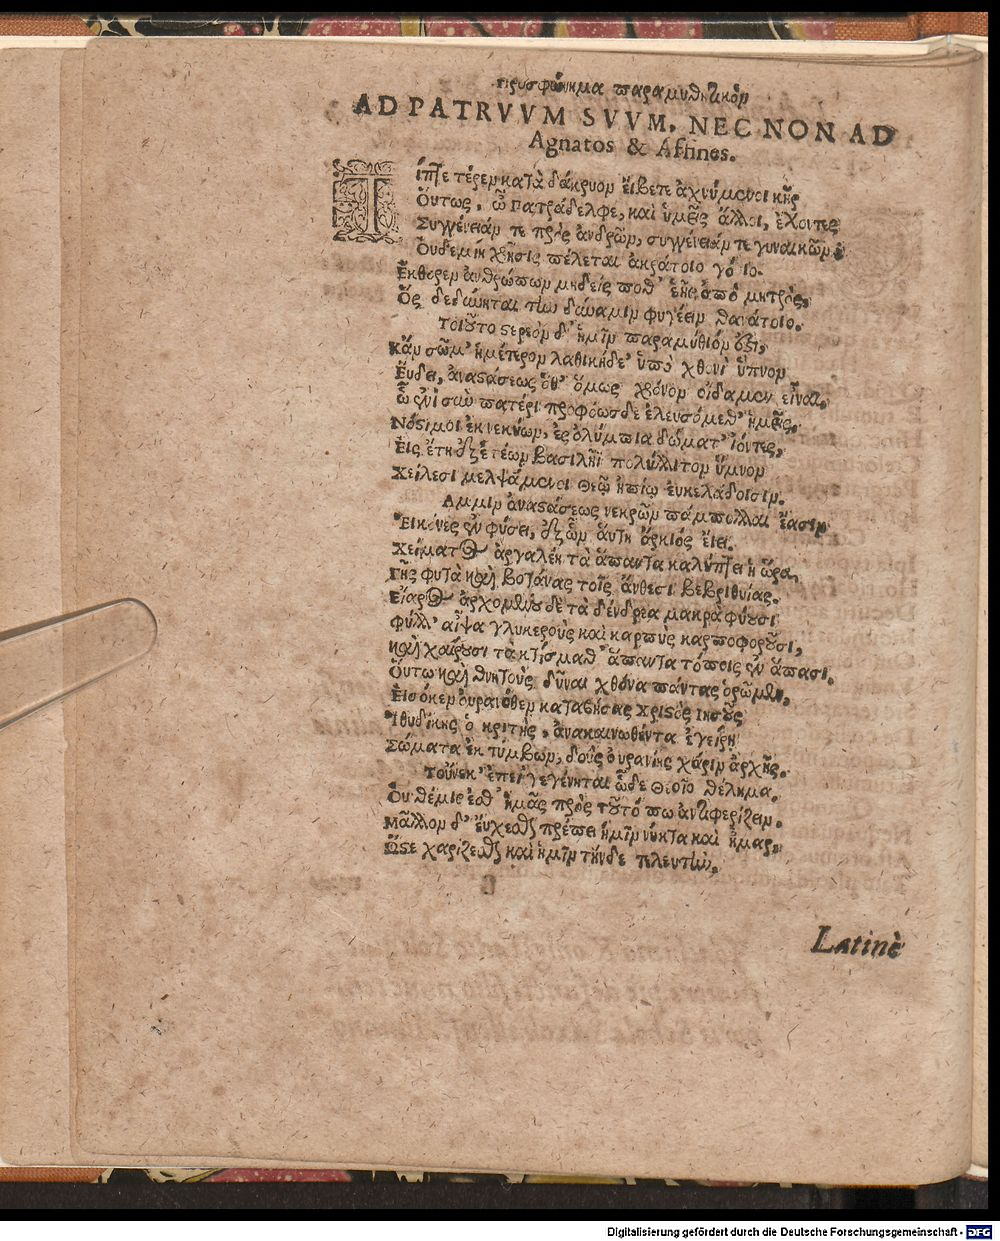 Προσφώνημα παραμυθητικὸν
AD PATRVVM SVVM, NEC NON AD
Agnatos & Affines.
Τίπτε τέρεν κατὰ δάκρυον ἔιβετε ἀχνύμενοι κῆρ
Ὅυτως, ὦ πατράδελφε, καὶ ὑμεῖς ἄλλοι, ἔχοντες
Συγγένειάν τε πρὸς ἀνδρῶν, συγγένειάν τε γυναικῶν;
Ὀυδεμίη χρῆσις πέλεται ἀκράτοιο γόοιο.
Ἔκθορεν ἀνθρώπων μηδεὶς ποθ' ἑῆς ἀπὸ μητρὸς,
Ὃς δεδάηται τὴν δύναμιν φυγέειν θανάτοιο.
Τοιοῦτο στερεὸν δ' ἡμῖν παραμύθιόν ἐστι,
Κἂν σῶμ' ἡμέτερον λαθικήδε' ὑπὸ χθονὶ ὕπνον
Ἕυδει, ἀναστάσεως ὅθ' ὅμως χρόνον οἴδαμεν εἶναι,
ᾧ ἐνὶ σὺν πατέρι προφόωσδε ἐλευσόμεθ' ἡμεῖς,
Νόστιμοι ἐκ νεκύων, ἐς ὀλύμπια δώματ' ἰόντες,
Ἐις ἔτη ἐξ ἐτέων βασιλῆϊ πολύλλιτον ὕμνον
Χείλεσι μελψάμενοι Θεῷ ἠπίῳ ἐυκελάδοισιν.
Αμμιν ἀναστάσεως νεκρῶν πάμπολλαι ἔασιν
Ἐικόνες ἐν φύσει, ἐξ ὧν ἅυτη ἄρκιος ἔιει.
Χείματος ἀργαλέη τὰ ἅπαντα καλύπτει ἡ ὥρα,
Γῆς φυτὰ καὶ βοτάνας τοῖς ἄνθεσι βεβριθυίας.
Εἴαρος ἀρχομένου δὲ τὰ δένδρεα μακρὰ φύουσι
Φύλλ' αἶψα γλυκεροὺς καὶ καρποὺς καρποφοροῦσι,
καὶ χαίρουσι τὰ κτίσμαθ' ἅπαντα τόποις ἐν ἅπασι.
Ὅυτω καὶ θνητοὺς δῦναι χθόνα πάντας ὁρῶμεν,
Ἐισόκεν ὀυρανόθεν καταβήσας Χριστὸς Ἰησοῦς
Ἰθυδίκης ὁ κριτὴς, ἀνακαινωθέντα ἐγείρῃ
Σώματα ἐκ τύμβων, δοὺς ὀυρανίης χάριν ἀρχῆς.
Τοὔνεκ' ἐπεὶ γεγένηται ὧδε Θεοῖο θέλημα.
Ὀυ θέμις ἐσθ' ἡμᾶς πρὸς τοῦτό πω ἀντιφερίζειν.
Μᾶλλον δ' ἔυχεσθαι πρέπει ἡμῖν νύκτα καὶ ἦμαρ,
Ὥστε χαρίζεσθαι καὶ ἡμῖν τήνδε τελευτὴν.
Latinè
Digitalisierung gefördert durch die Deutsche Forschungsgemeinschaft - DFG